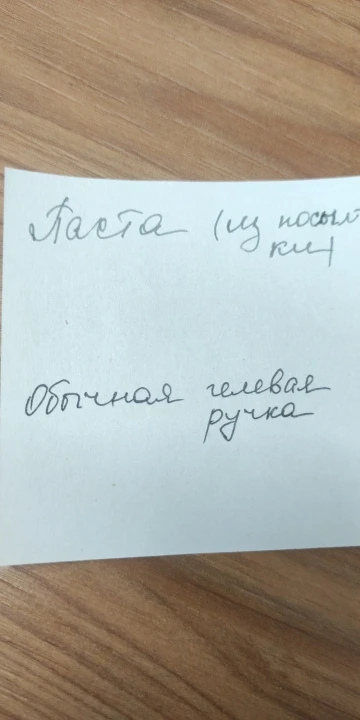 Паста (из посыл
ки)
Обычная гелевая
ручка